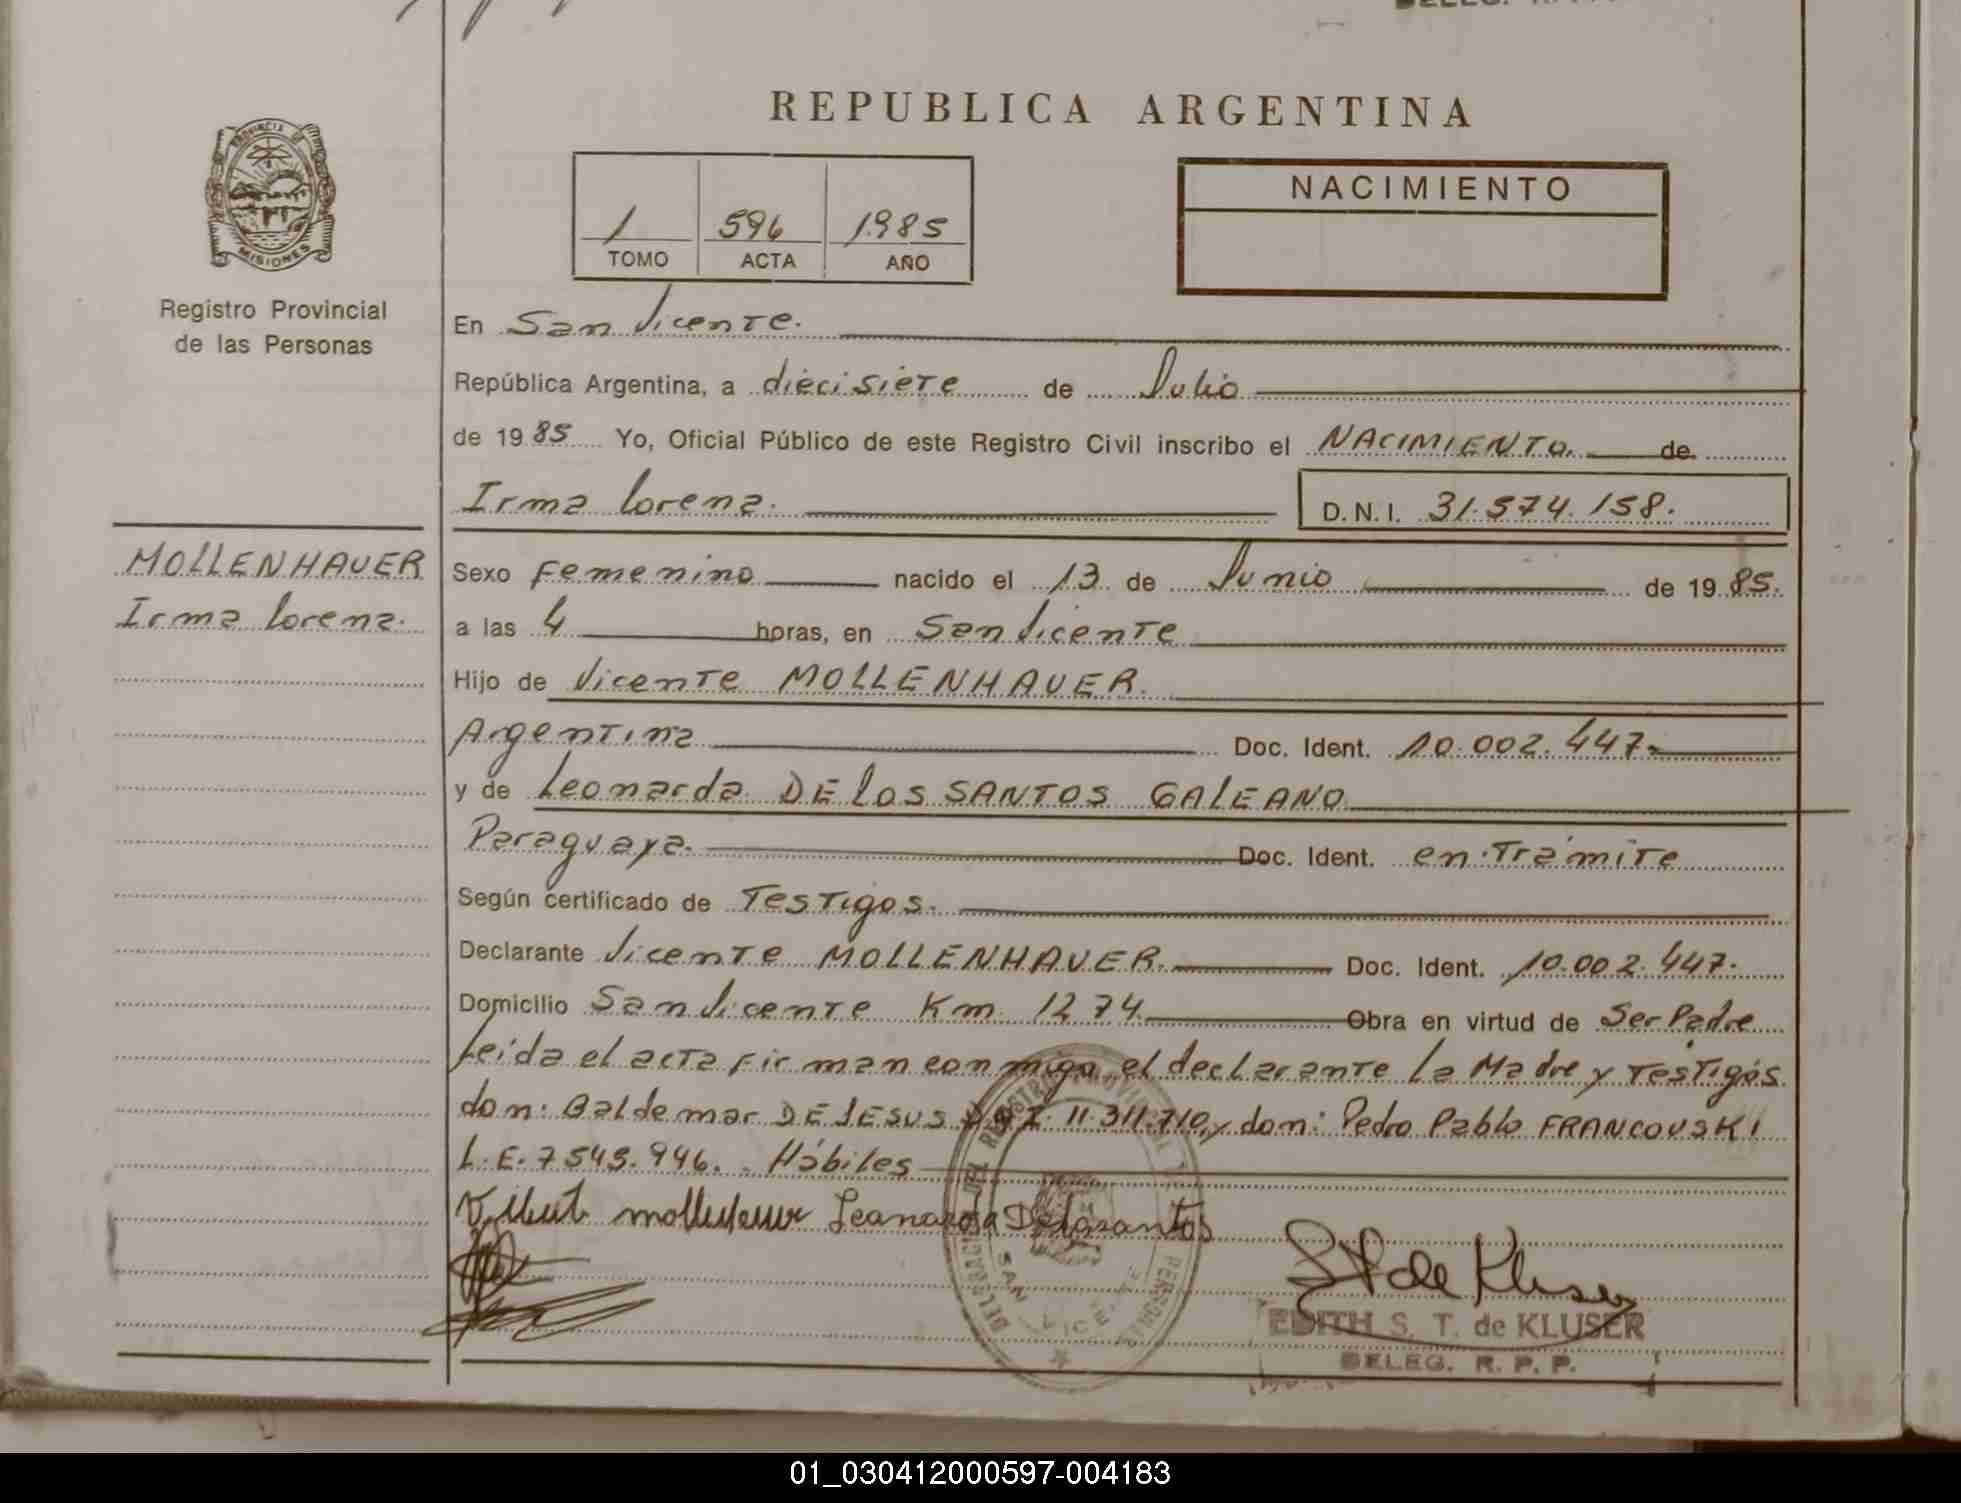 REPUBLICA ARGENTINA
PROVINCIA DE
MISIONES
Registro Provincial
de las Personas
1 596 1985
TOMO ACTA AÑO
NACIMIENTO
En San Vicente.
República Argentina, a diecisiete de Julio
de 1985 Yo, Oficial Público de este Registro Civil inscribo el NACIMIENTO. de
Irma Lorena. D.N.I. 31.574.158.
MOLLENHAUER
Irma Lorena.
Sexo Femenino nacido el 13 de Junio de 1985.
a las 4 horas, en San Vicente
Hijo de Vicente MOLLENHAUER.
Argentina Doc. Ident. 10.002.447-
y de Leonarda DE LOS SANTOS GALEANO
Paraguaya. Doc. Ident. en Trámite
Según certificado de Testigos.
Declarante Vicente MOLLENHAUER. Doc. Ident. 10.002.447.
Domicilio San Vicente Km 1274 Obra en virtud de Ser Padre
Leída el acta firman conmigo el declarante la Madre y Testigos
don: Baldemar DE JESUS 11.311.710, y don: Pedro Pablo FRANCOUSKI
L.E. 7.545.946. Hábiles
Leonarda Delosantos
DELEGACION DEL REGISTRO PROVINCIAL DE PERSONAS
SAN VICENTE
de Kluser
EDITH S. T. de KLUSER
DELEG. R. P. P.
01_030412000597-004183